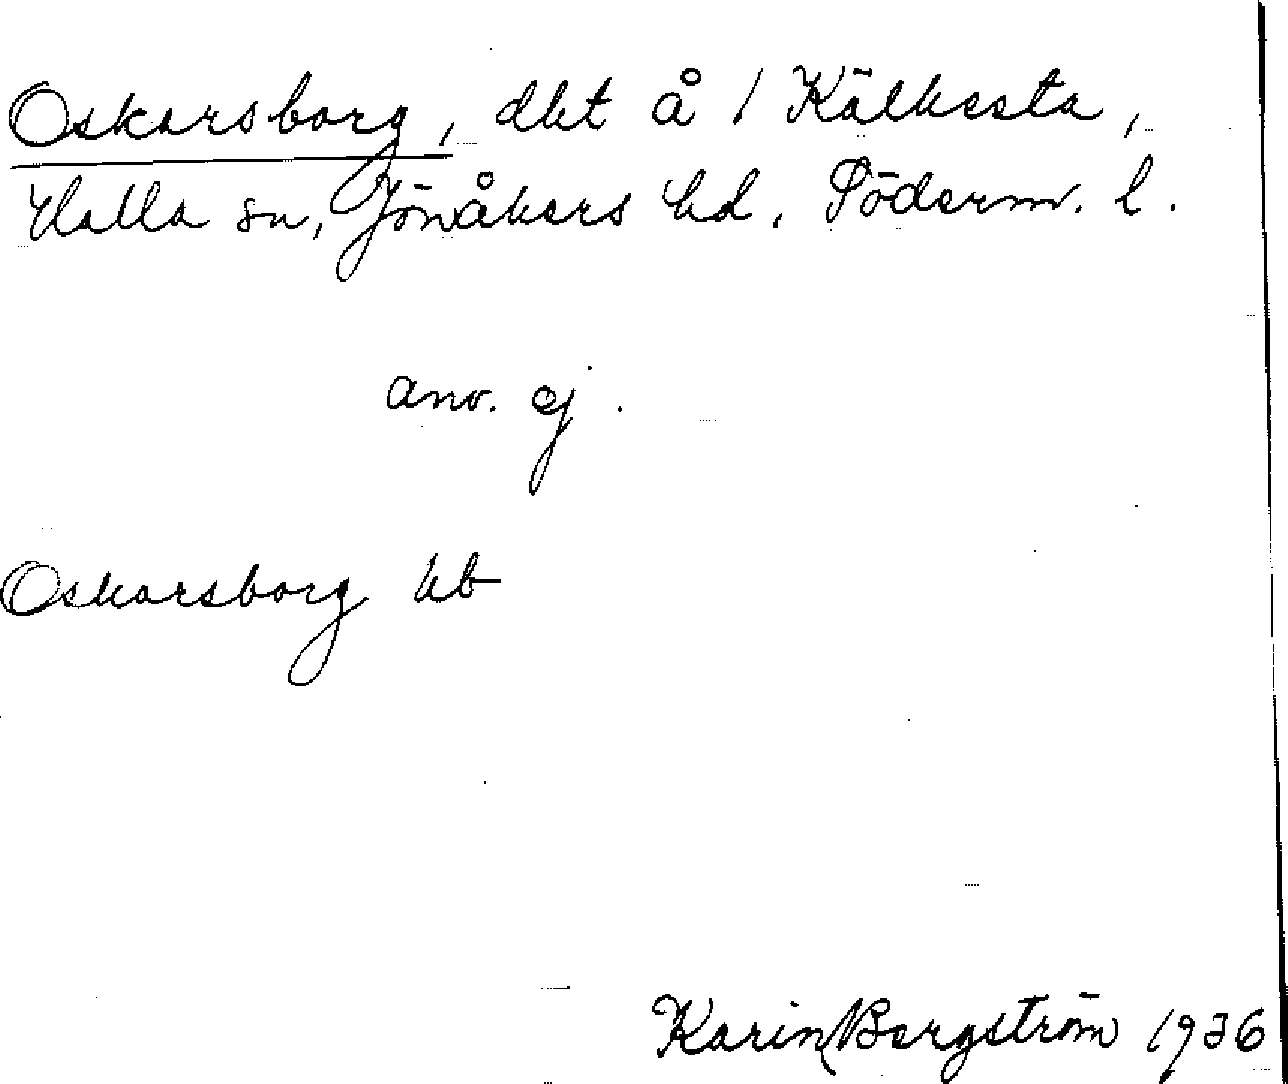 Oskarsborg, dkt å 1 Kälkesta,
Halla sn, Jönåkers hd, Söderm. l.
anv. ej.
Oskarsborg kb
Karin Bergström 1936